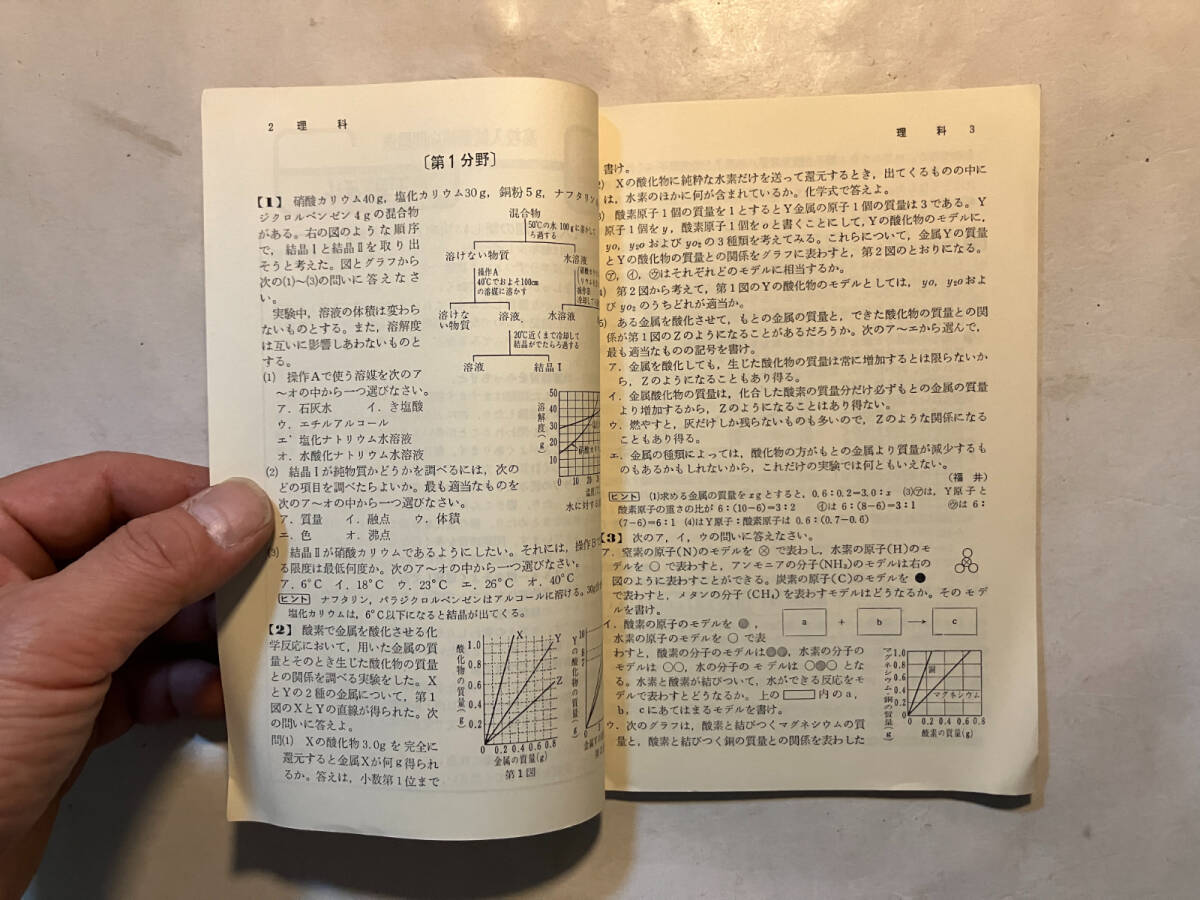 2 理 科
〔第1分野〕
【1】 硝酸カリウム40g，塩化カリウム30g，銅粉5g，ナフタリン
ジクロルベンゼン4gの混合物
がある。右の図のような順序
で，結晶Ⅰと結晶Ⅱを取り出
そうと考えた。図とグラフから
次の(1)〜(3)の問いに答えなさ
い。
実験中，溶液の体積は変わら
ないものとする。また，溶解度
は互いに影響しあわないものと
する。
(1) 操作Aで使う溶媒を次のア
〜オの中から一つ選びなさい。
ア．石灰水 イ．き塩酸
ウ．エチルアルコール
エ．塩化ナトリウム水溶液
オ．水酸化ナトリウム水溶液
(2) 結晶Ⅰが純物質かどうかを調べるには，次の
どの項目を調べたらよいか。最も適当なものを
次のア〜オの中から一つ選びなさい。
ア．質量 イ．融点 ウ．体積
エ．色 オ．沸点
(3) 結晶Ⅱが硝酸カリウムであるようにしたい。それには，操作Bで
る限度は最低何度か。次のア〜オの中から一つ選びなさい。
ア．6°C イ．18°C ウ．23°C エ．26°C オ．40°C
ヒント ナフタリン，パラジクロルベンゼンはアルコールに溶ける。30g
塩化カリウムは，6°C以下になると結晶が出てくる。
混合物
50℃の水100gに溶かして
ろ過する
溶けない物質
水溶液
操作A
40℃でおよそ100cm
の溶媒に溶かす
溶けな
い物質
溶液
水溶液
20℃近くまで冷却して
結晶がでたらろ過する
溶液
結晶Ⅰ
溶解度(g)
50
40
30
20
10
0 10 20 30
水に対する
【2】 酸素で金属を酸化させる化
学反応において，用いた金属の質
量とそのとき生じた酸化物の質量
との関係を調べる実験をした。X
とYの2種の金属について，第1
図のXとYの直線が得られた。次
の問いに答えよ。
問(1) Xの酸化物3.0gを完全に
還元すると金属Xが何g得られ
るか。答えは，小数第1位まで
酸化物の質量(g)
1.0
0.8
0.6
0.4
0.2
X
Y
Z
0 0.2 0.4 0.6 0.8
金属の質量(g)
第1図
Yの酸化物の質量(g)
10
8
理 科 3
書け。
Xの酸化物に純粋な水素だけを送って還元するとき，出てくるものの中に
は，水素のほかに何が含まれているか。化学式で答えよ。
酸素原子1個の質量を1とするとY金属の原子1個の質量は3である。Y
原子1個をy，酸素原子1個をoと書くことにして，Yの酸化物のモデルに，
yo，y₂oおよびyo₂の3種類を考えてみる。これらについて，金属Yの質量
とYの酸化物の質量との関係をグラフに表わすと，第2図のとおりになる。
㋐，㋑，㋒はそれぞれどのモデルに相当するか。
第2図から考えて，第1図のYの酸化物のモデルとしては，yo，y₂oおよ
びyo₂のうちどれが適当か。
ある金属を酸化させて，もとの金属の質量と，できた酸化物の質量との関
係が第1図のZのようになることがあるだろうか。次のア〜エから選んで，
最も適当なものの記号を書け。
ア．金属を酸化しても，生じた酸化物の質量は常に増加するとは限らないか
ら，Zのようになることもあり得る。
イ．金属酸化物の質量は，化合した酸素の質量分だけ必ずもとの金属の質量
より増加するから，Zのようになることはあり得ない。
ウ．燃やすと，灰だけしか残らないものも多いので，Zのような関係になる
こともあり得る。
エ．金属の種類によっては，酸化物の方がもとの金属より質量が減少するも
のもあるかもしれないから，これだけの実験では何ともいえない。
（福 井）
ヒント (1)求める金属の質量をxgとすると，0.6：0.2＝3.0：x (3)㋐は，Y原子と
酸素原子の重さの比が 6：(10−6)＝3：2 ㋑は6：(8−6)＝3：1 ㋒は6：
(7−6)＝6：1 (4)はY原子：酸素原子は 0.6：(0.7−0.6)
【3】 次のア，イ，ウの問いに答えなさい。
ア．窒素の原子(N)のモデルを ⊗ で表わし，水素の原子(H)のモ
デルを ○ で表わすと，アンモニアの分子(NH₃)のモデルは右の
図のように表わすことができる。炭素の原子(C)のモデルを ●
で表わすと，メタンの分子(CH₄)を表わすモデルはどうなるか。そのモデ
ルを書け。
イ．酸素の原子のモデルを ◍，
水素の原子のモデルを ○ で表
わすと，酸素の分子のモデルは◍◍，水素の分子の
モデルは ○○，水の分子のモデルは ○◍○ とな
る。水素と酸素が結びついて，水ができる反応をモ
デルで表わすとどうなるか。上の□内のa，
b，cにあてはまるモデルを書け。
a + b → c
ウ．次のグラフは，酸素と結びつくマグネシウムの質
量と，酸素と結びつく銅の質量との関係を表わした
マグネシウム・銅の質量(g)
1.0
0.8
0.6
0.4
0.2
銅
マグネシウム
0 0.2 0.4 0.6 0.8
酸素の質量(g)